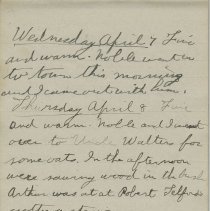 Wednesday April 7 Fair
and warm. Noble went in
to town this morning
and I came out with him.
Thursday April 8 Fair
and warm. Noble and I went
over to Uncle Walters for
some oats. In the afternoon
were sawing wood in the bush
Arthur was out at Robert Telfords